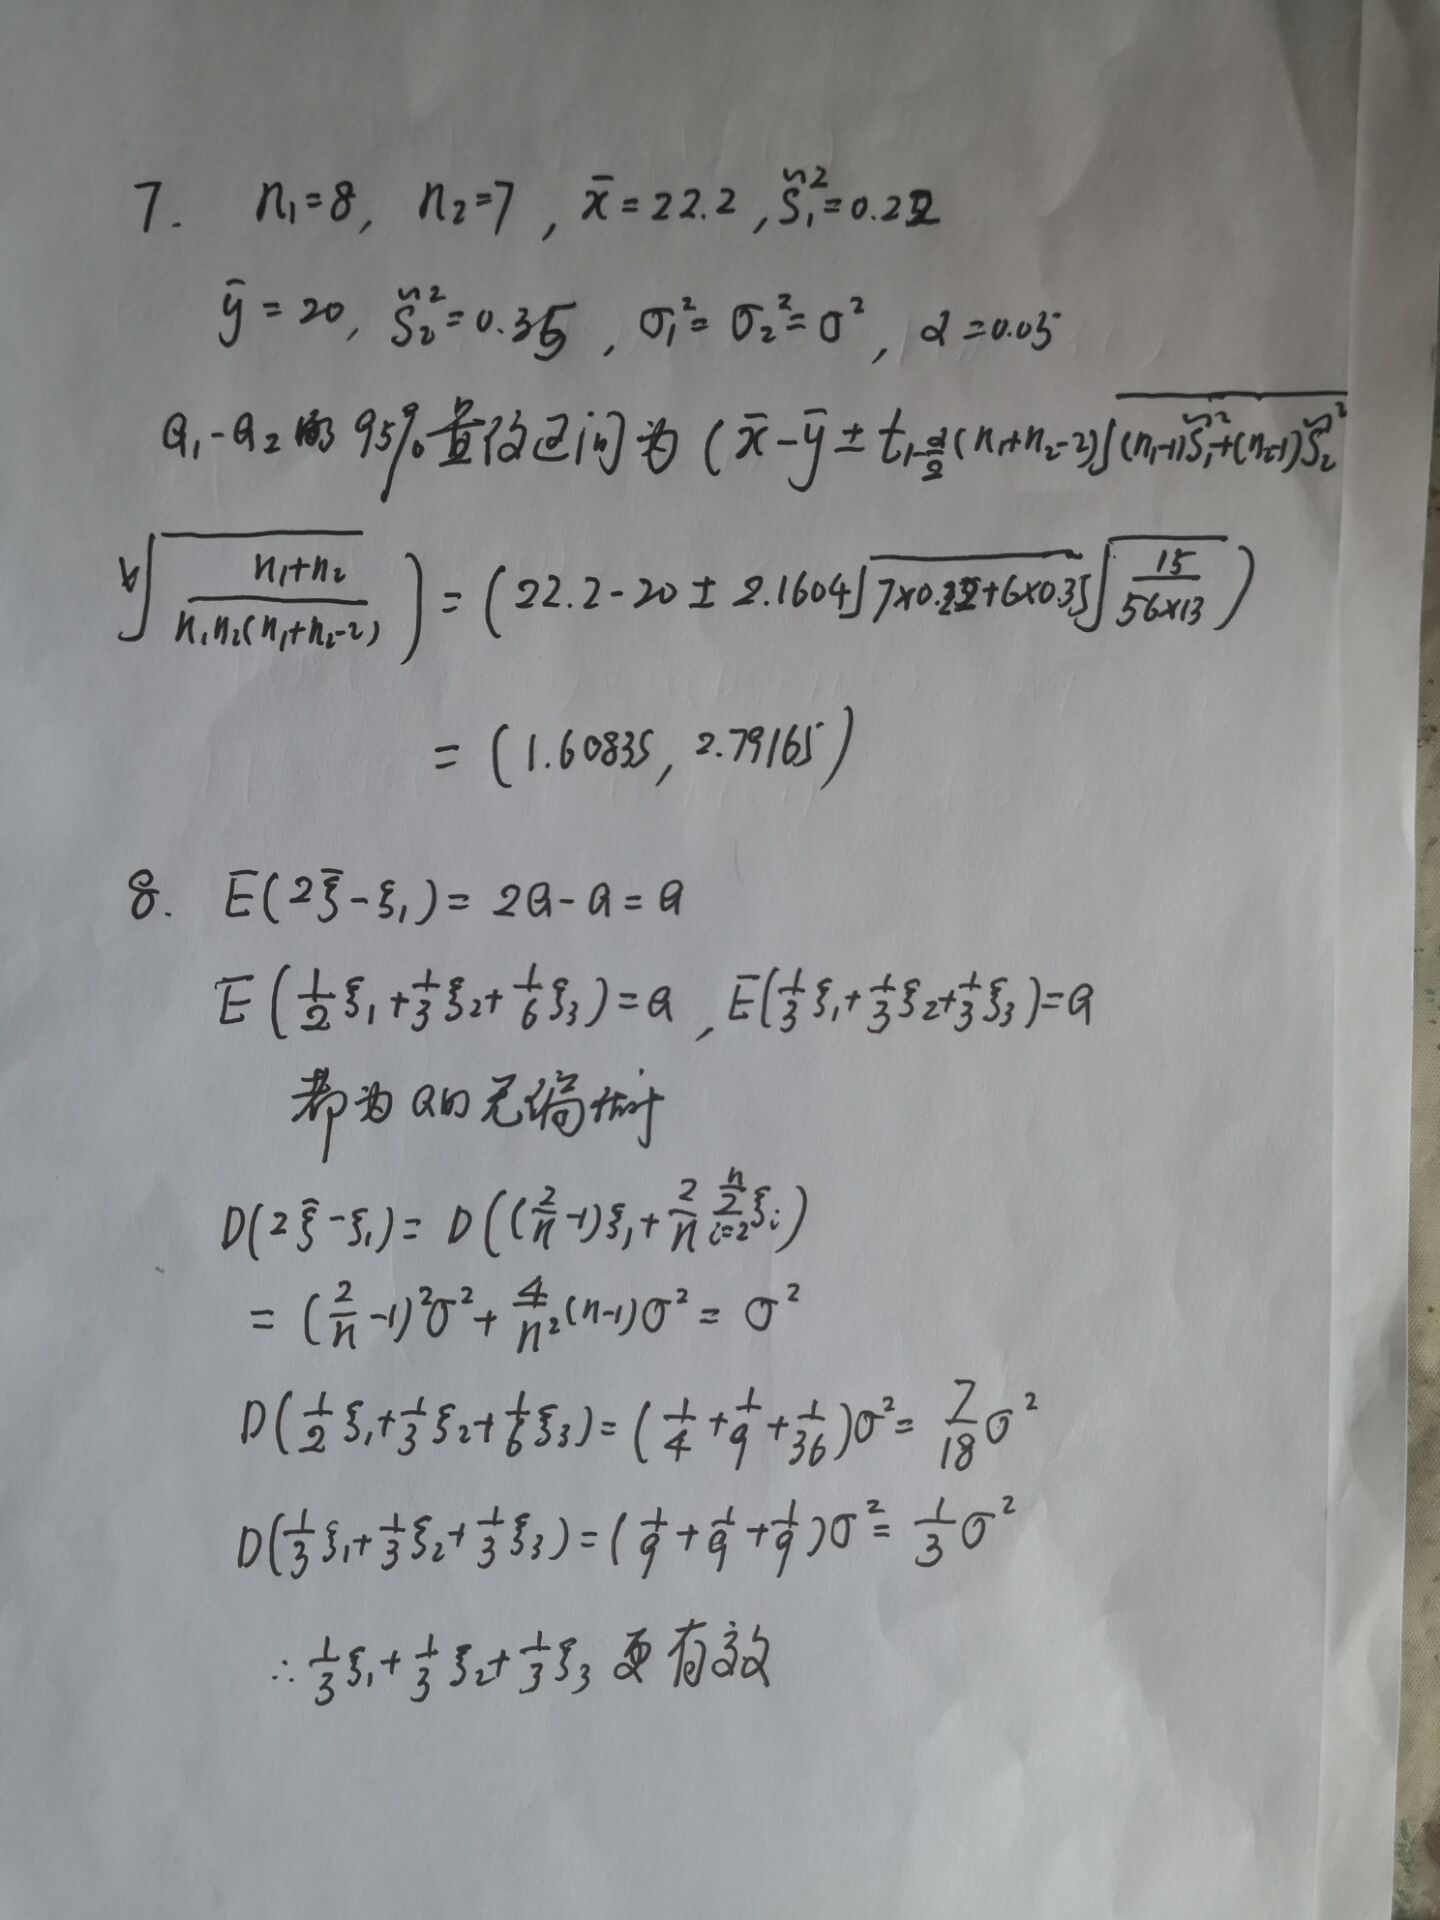 7. n₁=8, n₂=7, x̄=22.2, S̃₁²=0.22
ȳ=20, S̃₂²=0.35, σ₁²=σ₂²=σ², α=0.05
a₁-a₂的95%置信区间为(x̄-ȳ±t₁₋α/₂(n₁+n₂-2)√((n₁-1)S̃₁²+(n₂-1)S̃₂²)
×√((n₁+n₂)/(n₁n₂(n₁+n₂-2))))=(22.2-20±2.1604√(7×0.22+6×0.35)√(15/(56×13)))
=(1.60835, 2.79165)
8. E(2ξ̄-ξ₁)=2a-a=a
E(1/2ξ₁+1/3ξ₂+1/6ξ₃)=a, E(1/3ξ₁+1/3ξ₂+1/3ξ₃)=a
都为a的无偏估计
D(2ξ̄-ξ₁)=D((2/n-1)ξ₁+2/n∑ⁿᵢ₌₂ξᵢ)
=(2/n-1)²σ²+4/n²(n-1)σ²=σ²
D(1/2ξ₁+1/3ξ₂+1/6ξ₃)=(1/4+1/9+1/36)σ²=7/18σ²
D(1/3ξ₁+1/3ξ₂+1/3ξ₃)=(1/9+1/9+1/9)σ²=1/3σ²
∴1/3ξ₁+1/3ξ₂+1/3ξ₃更有效